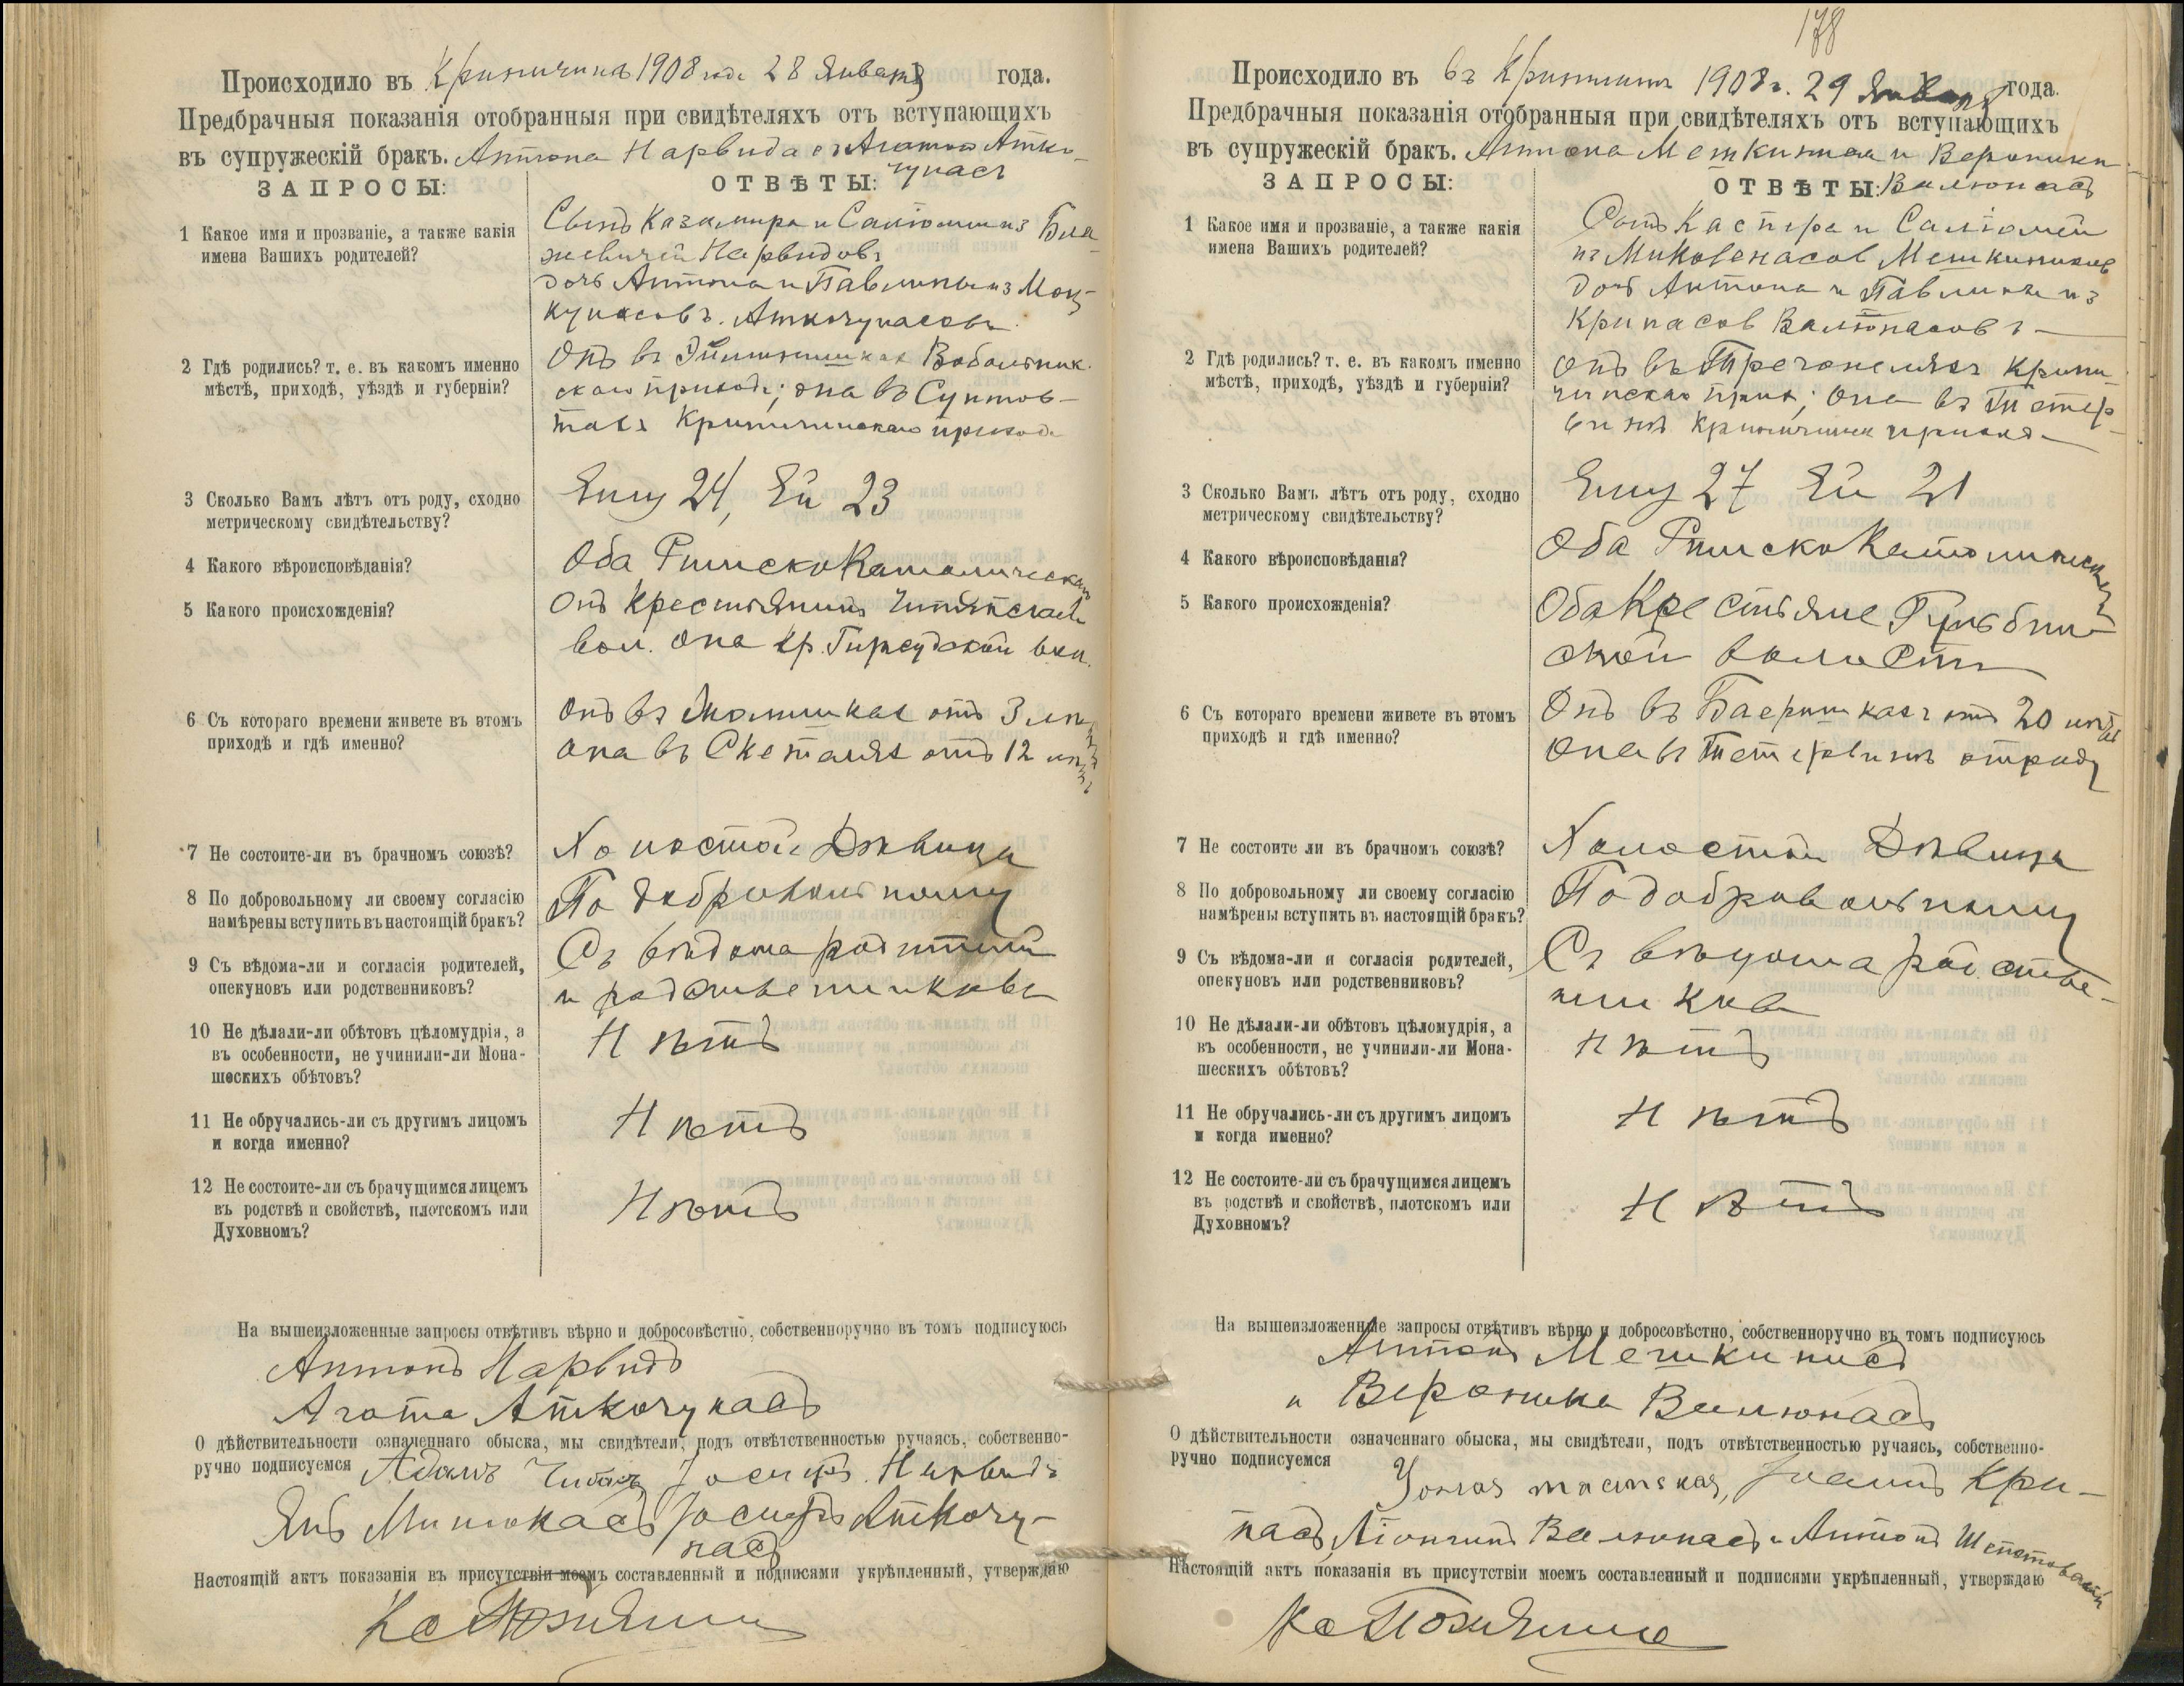 Происходило въ Криничинѣ 1908 года 28 Января года.
Предбрачныя показанія отобранныя при свидѣтеляхъ отъ вступающихъ
въ супружескій бракъ. Антона Нарвида съ Агатою Атко-
чунасъ
ЗАПРОСЫ:
ОТВѢТЫ:
1 Какое имя и прозваніе, а также какія
имена Вашихъ родителей?
Сынъ Казимира и Саломеи из Бла
жевичей Нарвидовъ
дочь Антона и Павлины из Моц-
кунасовъ Аткочунасовъ
2 Гдѣ родились? т. е. въ какомъ именно
мѣстѣ, приходѣ, уѣздѣ и губерніи?
Онъ въ Вобольник.
скаго прихода; она въ Сунтов-
тахъ Криничинскаго прихода
3 Сколько Вамъ лѣтъ отъ роду, сходно
метрическому свидѣтельству?
Ему 24, Ей 23
4 Какого вѣроисповѣданія?
Оба Римско Католическаго
5 Какого происхожденія?
Онъ крестьянинъ
вол. Она кр. Гирсудской вол.
6 Съ котораго времени живете въ этомъ
приходѣ и гдѣ именно?
Онъ въ отъ 3 лѣтъ
Она въ Скеталяхъ отъ 12 лѣтъ
7 Не состоите-ли въ брачномъ союзѣ?
Холостой Дѣвица
8 По добровольному ли своему согласію
намѣрены вступить въ настоящій бракъ?
По добровольному
9 Съ вѣдома-ли и согласія родителей,
опекуновъ или родственниковъ?
Съ вѣдома родителей
и родственниковъ
10 Не дѣлали-ли обѣтовъ цѣломудрія, а
въ особенности, не учинили-ли Мона-
шескихъ обѣтовъ?
Нѣтъ
11 Не обручались-ли съ другимъ лицомъ
и когда именно?
Нѣтъ
12 Не состоите-ли съ брачущимся лицемъ
въ родствѣ и свойствѣ, плотскомъ или
Духовномъ?
Нѣтъ
На вышеизложенные запросы отвѣтивъ вѣрно и добросовѣстно, собственноручно въ томъ подписуюсь
Антонъ Нарвидъ
Агата Аткочунасъ
О дѣйствительности означеннаго обыска, мы свидѣтели, подъ отвѣтственностью ручаясь, собственно-
ручно подписуемся Адамъ Іосифъ Нарвидъ
Янъ Милюнасъ Іосифъ Аткочу-
насъ
Настоящій актъ показанія въ присутствіи моемъ составленный и подписями укрѣпленный, утверждаю
178
Происходило въ въ Криничинѣ 1908 г. 29 Января года.
Предбрачныя показанія отобранныя при свидѣтеляхъ отъ вступающихъ
въ супружескій бракъ. Антона Мешкиниса и Вероники
Валюнасъ
ЗАПРОСЫ:
ОТВѢТЫ:
1 Какое имя и прозваніе, а также какія
имена Вашихъ родителей?
Сынъ Каспера и Саломеи
из Миковенасов Мешкинисовъ
дочь Антона и Павлины из
Крипасов Валюнасовъ
2 Гдѣ родились? т. е. въ какомъ именно
мѣстѣ, приходѣ, уѣздѣ и губерніи?
Онъ въ Кринич
чинскаго прих; Она въ Тетер-
винѣ Криничинск прихода
3 Сколько Вамъ лѣтъ отъ роду, сходно
метрическому свидѣтельству?
Ему 27 Ей 21
4 Какого вѣроисповѣданія?
Оба Римско Католическаго
5 Какого происхожденія?
Оба Крестьяне
ской волости
6 Съ котораго времени живете въ этомъ
приходѣ и гдѣ именно?
Онъ въ отъ 20 лѣтъ
Она въ Тетервинѣ отъ роду
7 Не состоите ли въ брачномъ союзѣ?
Холостой Дѣвица
8 По добровольному ли своему согласію
намѣрены вступить въ настоящій бракъ?
По добровольному
9 Съ вѣдома-ли и согласія родителей,
опекуновъ или родственниковъ?
Съ вѣдома родстве-
нников
10 Не дѣлали-ли обѣтовъ цѣломудрія, а
въ особенности, не учинили-ли Мона-
шескихъ обѣтовъ?
Нѣтъ
11 Не обручались-ли съ другимъ лицомъ
и когда именно?
Нѣтъ
12 Не состоите-ли съ брачущимся лицемъ
въ родствѣ и свойствѣ, плотскомъ или
Духовномъ?
Нѣтъ
На вышеизложенные запросы отвѣтивъ вѣрно и добросовѣстно, собственноручно въ томъ подписуюсь
Антонъ Мешкинисъ
и Вероника Валюнасъ
О дѣйствительности означеннаго обыска, мы свидѣтели, подъ отвѣтственностью ручаясь, собственно-
ручно подписуемся Кри-
пасъ Валюнасъ и Антонъ
Настоящій актъ показанія въ присутствіи моемъ составленный и подписями укрѣпленный, утверждаю